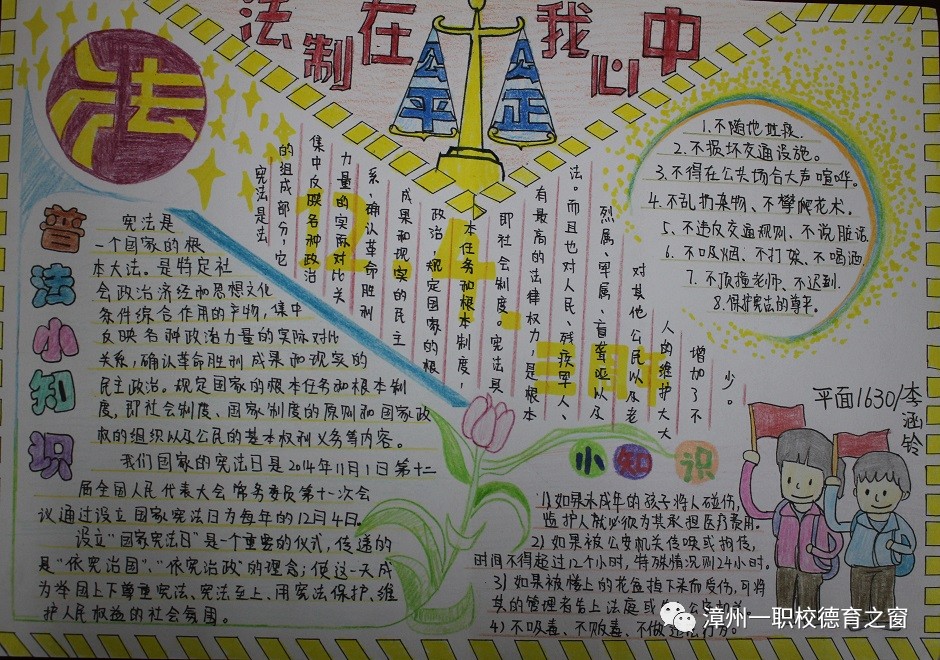 法制在我心中
公平
公正
法
普法小知识
宪法是
一个国家的根
本大法。是特定社
会政治济经和思想文化
条件综合作用的产物,集中
反映各种政治力量的实际对比
关系,确认革命胜利成果和现实的
民主政治。规定国家的根本任务和根本制
度,即社会制度、国家制度的原则和国家政
权的组织以及公民的基本权利义务等内容。
我们国家的宪法日是2014年11月1日第十二
届全国人民代表大会常务委员第十一次会
议通过设立国家宪法日为每年的12月4日。
设立“国家宪法日”是一个重要的仪式,传递的
是“依宪治国”、“依宪治政”的理念;使这一天成
为举国上下尊重宪法、宪法至上、用宪法保护、维
护人民权益的社会氛围。
宪法是法
的组成部分,它
集中反映各种政治
力量的实际对比关
系,确认革命胜利
成果和现实的民主
政治,规定国家的根
本任务和根本制度,
即社会制度。宪法具
有最高的法律权力,是根本
法。而且也对人民、残疾军人、
烈属、军属、盲聋哑以及
对其他公民以及老
人的维护大大
增加了不
少。
1.不随地吐痰.
2.不损坏交通设施。
3.不得在公共场合大声喧哗。
4.不乱扔杂物、不攀爬花木.
5、不违反交通规则、不说脏话
6、不吸烟、不打架、不喝酒
7、不顶撞老师、不迟到.
8.保护宪法的尊严。
平面1630/李涵铃
小知识
1)如果未成年的孩子将人碰伤,
监护人就必须为其承担医疗费用。
2)如果被公安机关传唤或拘传,
时间不得超过12个小时,特殊情况则24小时。
3)如果被楼上的花盆掉下来而受伤,可将
其的管理者告上法庭或
4)不吸毒、不贩毒、不做违法行为。
漳州一职校德育之窗